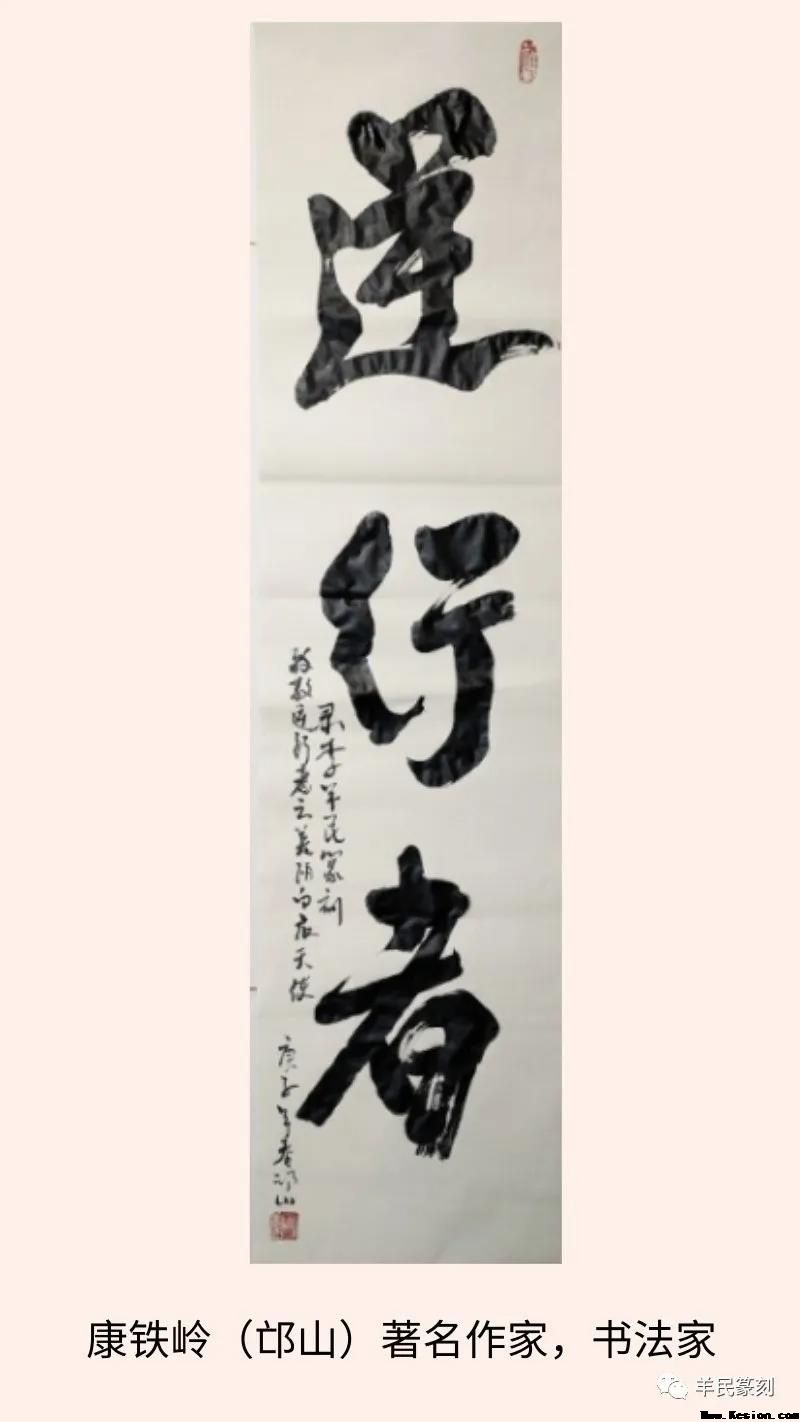 逆行者
李羊民篆刻
致敬逆行者 白衣天使
庚子年春邙山
康铁岭（邙山）著名作家，书法家
羊民篆刻
Www.Kesion.com